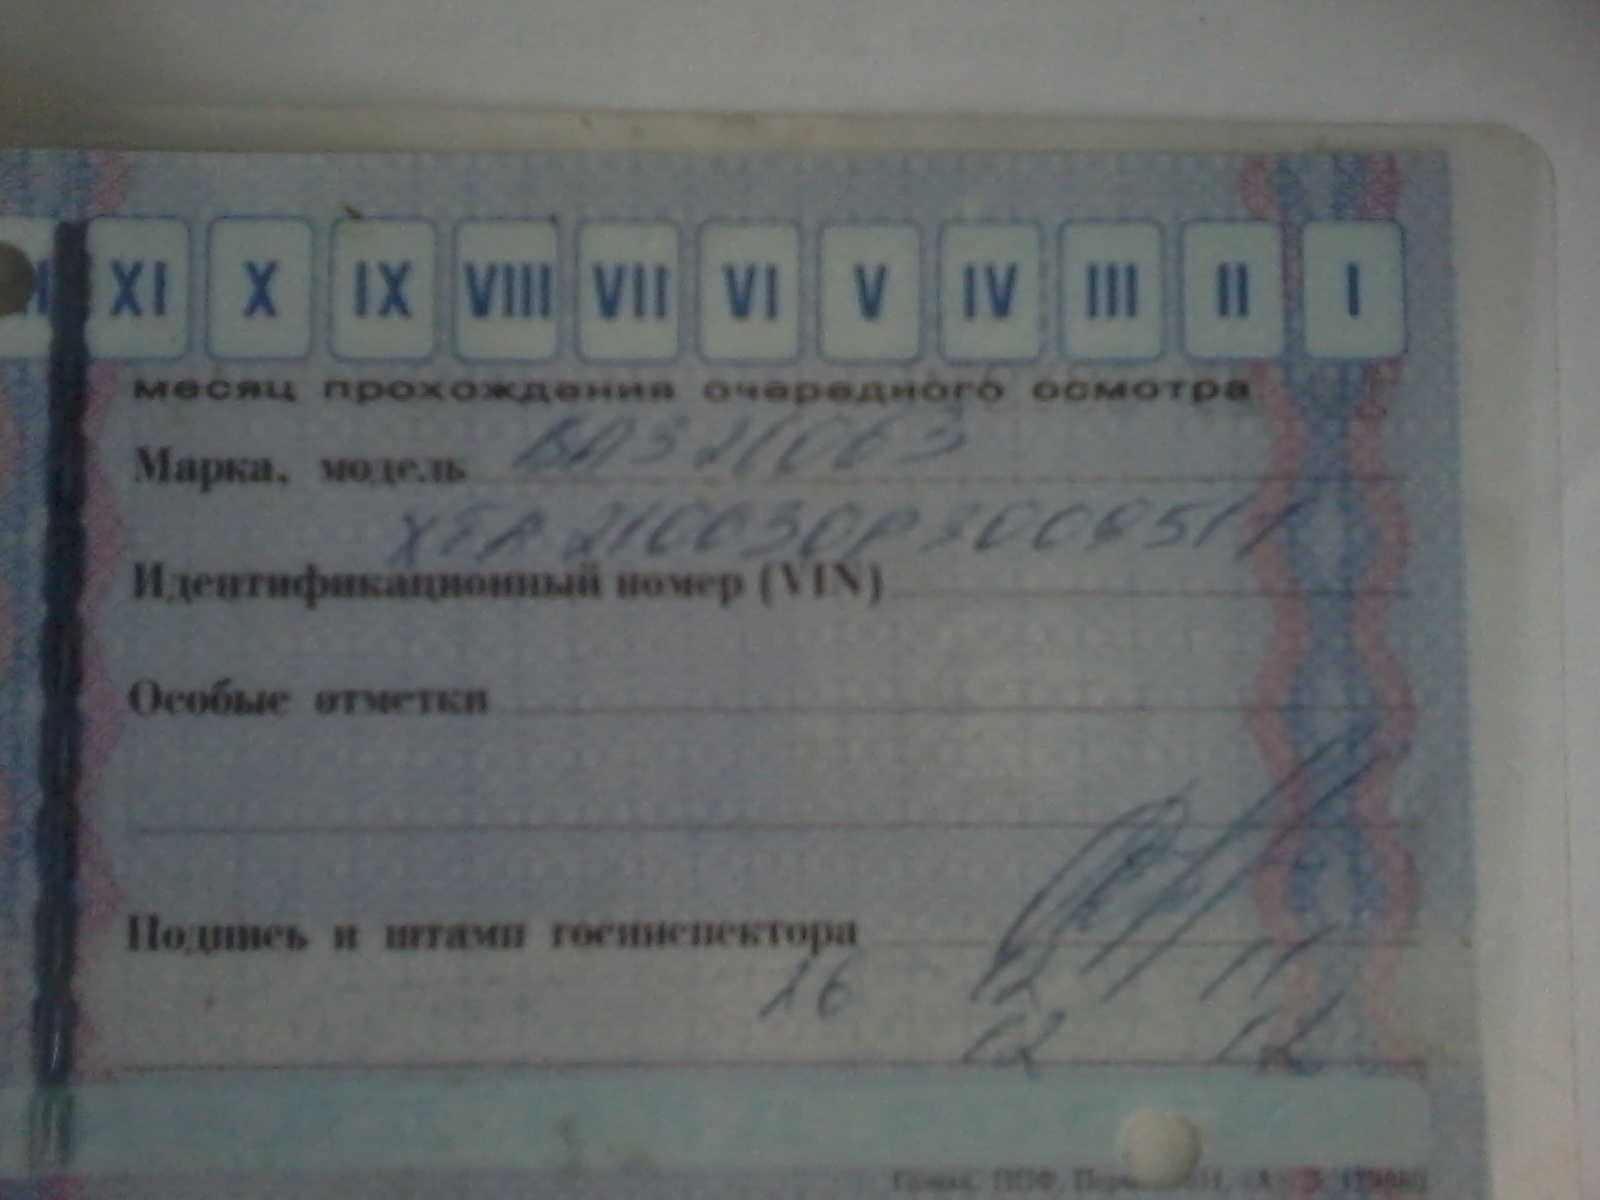 XI X IX VIII VII VI V IV III II I
месяц прохождения очередного осмотра
Марка, модель ВАЗ 21063
ХТА 210630Р3008511
Идентификационный номер (VIN)
Особые отметки
Подпись и штамп госинспектора
16 12 11
12 12
Гознак, ППФ,